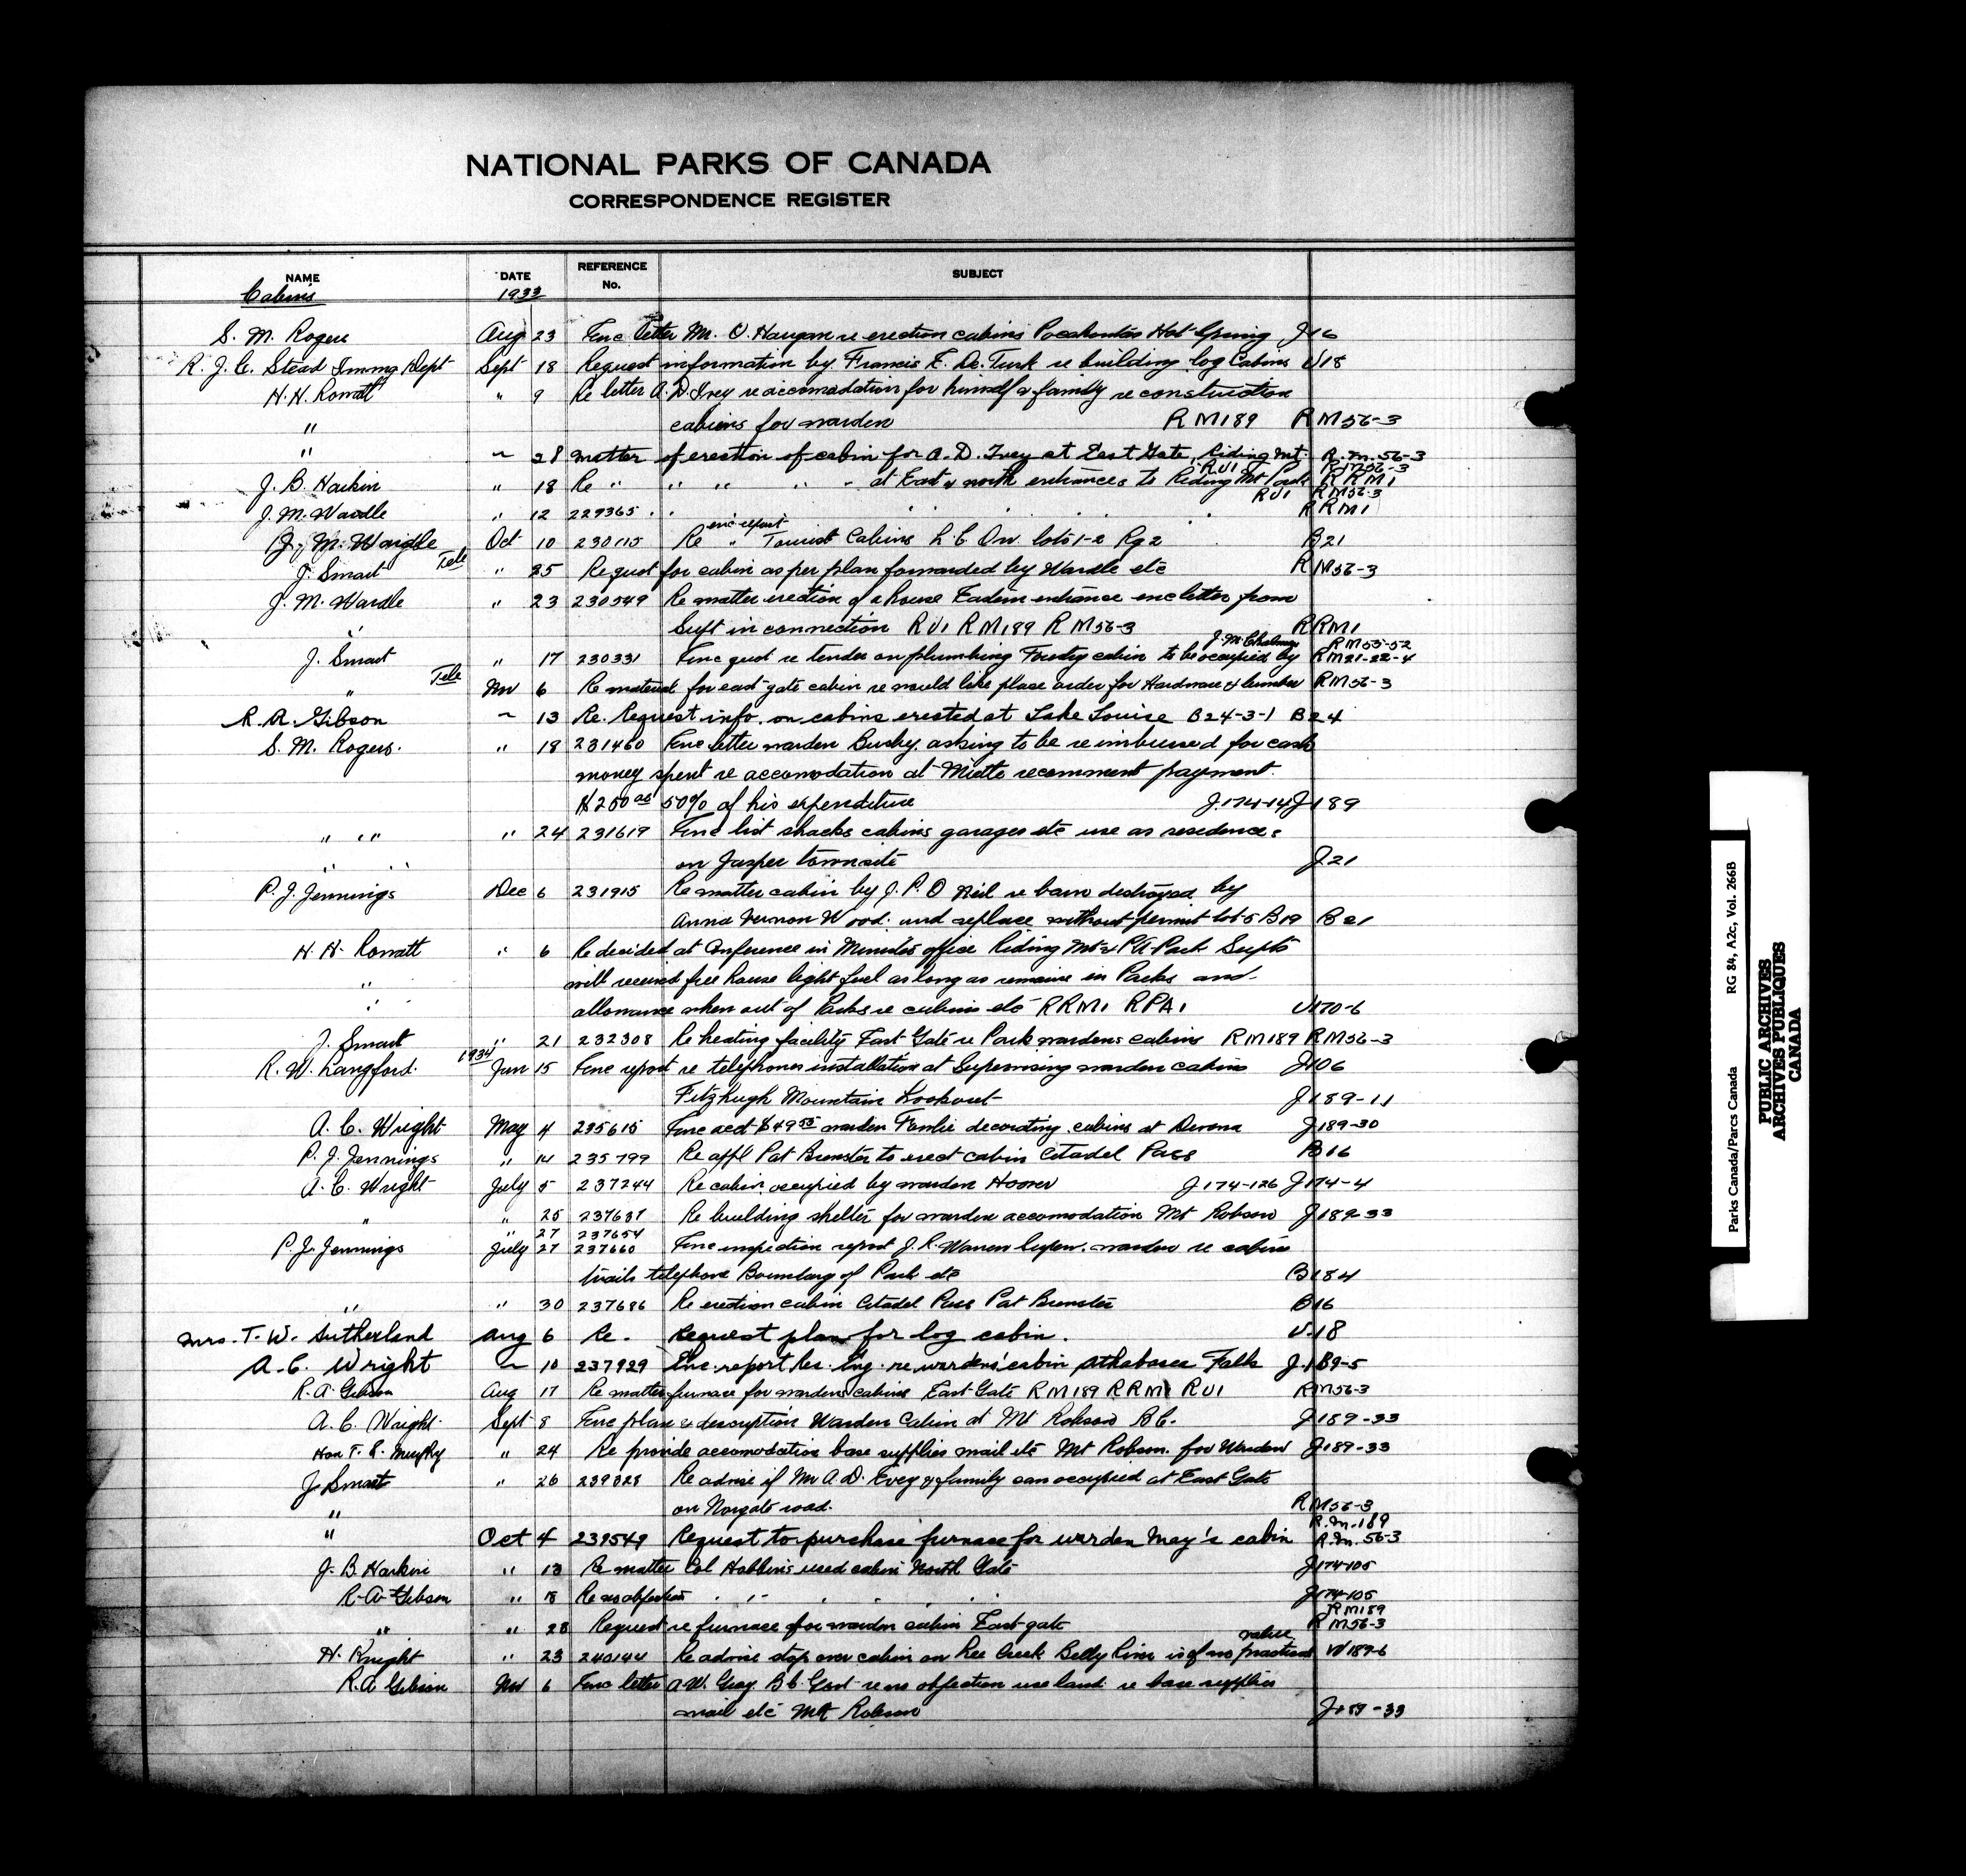 NATIONAL PARKS OF CANADA
CORRESPONDENCE REGISTER
NAME DATE REFERENCE No. SUBJECT
Cabins 1933
S. M. Rogers Aug 23 Enc letter Mr. O. Haugan re erection cabins Pocahontas Hot Spring J16
R. J. C. Stead Immg Dept Sept 18 Request information by Francis E. De. Turk re building log Cabins U18
H. H. Rowatt " 9 Re letter A. D. Ivey re accomodation for himself & family re construction
" cabins for warden RM189 RM56-3
" " 28 matter of erection of cabin for A. D. Ivey at East Gate, Riding Mt. R.M. 56-3
J. B. Harkin " 18 Re " " " " " at East & north entrances to Riding Mt Park RU1 RM56-3 RRM1
J. M. Wardle " 12 229365 " " " " " RU1 RM56-3 RRM1
J. M. Wardle Oct 10 230115 Re enc report " Tourist Cabins L. C. Orr lots 1-2 Rg 2 B21
J. Smart Tele " 25 Request for cabin as per plan forwarded by Wardle etc RM56-3
J. M. Wardle " 23 230549 Re matter erection of a house Eastern entrance enc letter from
" Supt in connection RU1 RM189 RM56-3 RRM1
J. Smart " 17 230331 Enc quot re tender on plumbing cabin to be occupied by J. M. RM55-52 RM21-22-4
" Tele Nov 6 Re material for east gate cabin re would like place order for Hardware & lumber RM56-3
R. A. Gibson " 13 Re. Request info. on cabins erected at Lake Louise B24-3-1 B24
S. M. Rogers. " 18 231460 Enc letter warden Busby, asking to be reimbursed for cash
money spent re accomodation at Miette recomment payment.
$200 as 50% of his expenditure J.174-14 J189
" " " " 24 231619 Enc list shacks cabins garages etc use as residences
" " on Jasper townsite J21
P. J. Jennings Dec 6 231915 Re matter cabin by J. P. O Neil re barn destroyed by
Anna Vernon Wood. and replace without permit lot 5 B19 B21
H. H. Rowatt " 6 Re decided at Conference in Minister's office Riding Mt & PA Park Supts
" will received free house light fuel as long as remain in Parks and
" allowance when out of Parks re cabins etc RRM1 RPA1 U170-6
J. Smart " 21 232308 Re heating facility East Gate re Park wardens cabins RM189 RM56-3
R. W. Langford. 1934 Jan 15 Enc report re telephones installation at Supervising warden cabins J106
Fitzhugh Mountain Lookout J189-11
A. C. Wright May 4 235615 Enc acct $49 warden decorating cabins at Devona J189-30
P. J. Jennings " 14 235799 Re appl Pat Brewster to erect cabin Citadel Pass B16
A. C. Wright July 5 237244 Re cabin occupied by warden Hoover J174-126 J174-4
" " 25 237631 Re building shelter for warden accomodation Mt Robson J189-33
27 237654
P. J. Jennings July 27 237660 Enc inspection report J. R. Warren Superv. warden re cabins
trails telephone Boundary of Park etc B184
" " 30 237686 Re erection cabin Citadel Pass Pat Brewster B16
Mrs. T. W. Sutherland Aug 6 Re. Request plan for log cabin. U.18
A. C. Wright " 10 237929 Enc. report Res. Eng. re wardens' cabin Athabasca Falls J.189-5
R. A. Gibson Aug 17 Re matter furnace for wardens cabins East Gate RM189 RRM1 RU1 RM56-3
A. C. Wright Sept 8 Enc plan & description Warden Cabin at Mt Robson B C. J189-33
Hon T. G. Murphy " 24 Re provide accomodation base supplies mail etc Mt Robson for Warden J189-33
J. Smart " 26 239328 Re advise if Mr A. D. Evey & family can occupied at East Gate
" on Norgate road. RM56-3
" Oct 4 239549 Request to purchase furnace for warden May's cabin R.M.189 R.M. 56-3
J. B. Harkin " 13 Re matter Col Hobbins used cabin North Gate J174-105
R. A. Gibson " 18 Re no objection " " " " J174-105
" " 28 Request re furnace for warden cabin East gate RM189 RM56-3
H. Knight " 23 240144 Re advise stop over cabin on Lee Creek Belly River is of no practical value W189-6
R. A. Gibson Nov 6 Enc letter A. W. Gray B C Govt re no objection use land re base supplies
mail etc Mt Robson J189-33
Parks Canada/Parcs Canada RG 84, A2c, Vol. 266B
PUBLIC ARCHIVES
ARCHIVES PUBLIQUES
CANADA